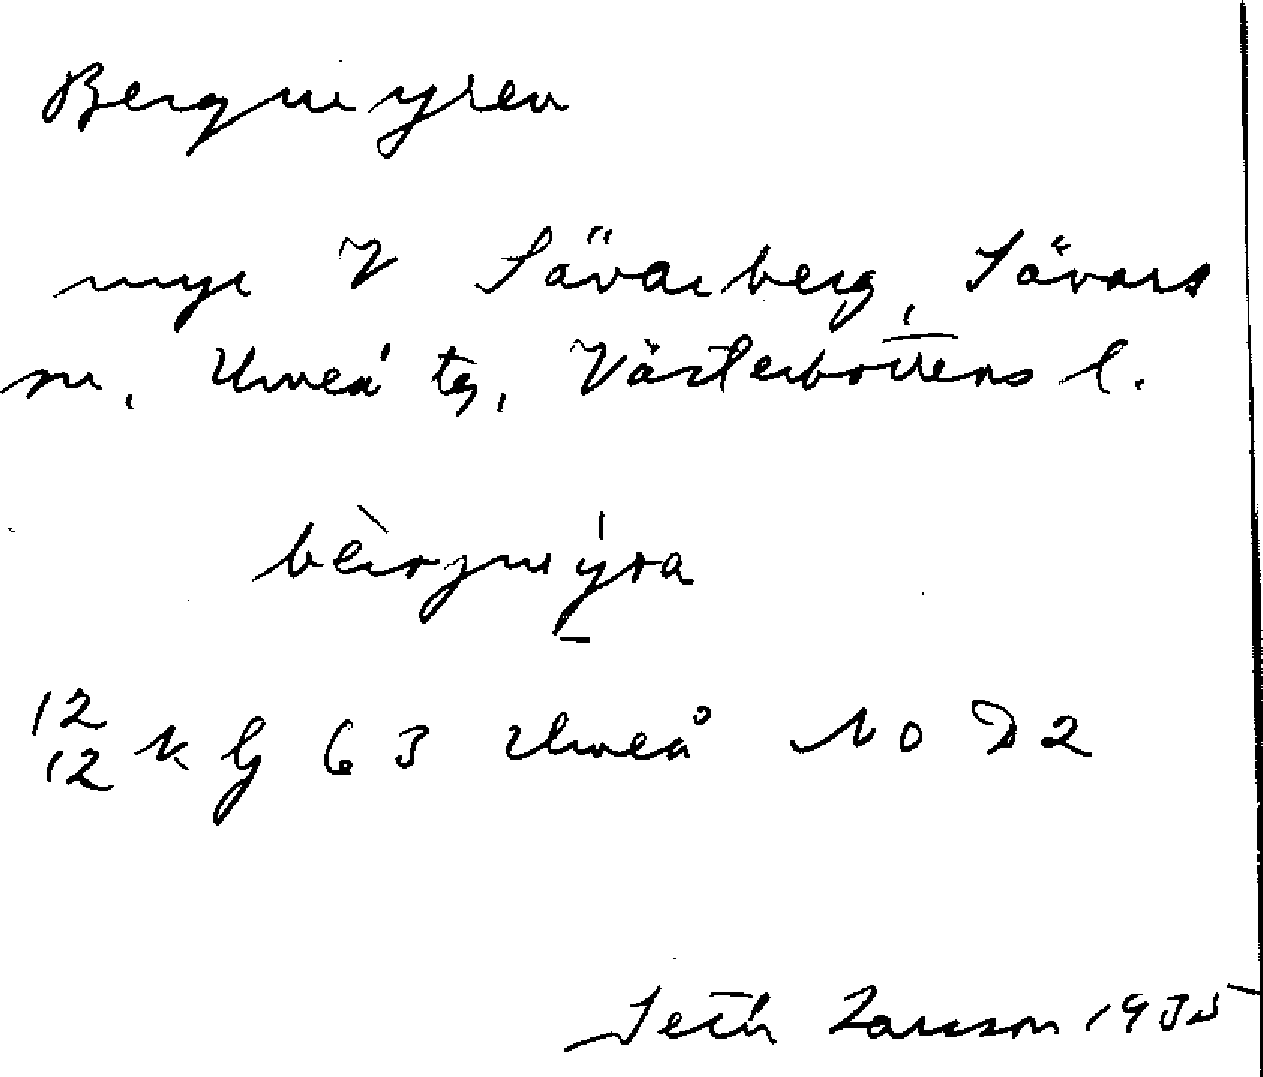 Bergmyren
myr V Sävarberg, Sävars
sn, Umeå tg, Västerbottens l.
bèrgmýra
12
12 k G 63 Umeå NO D2
Seth Larsson 1935